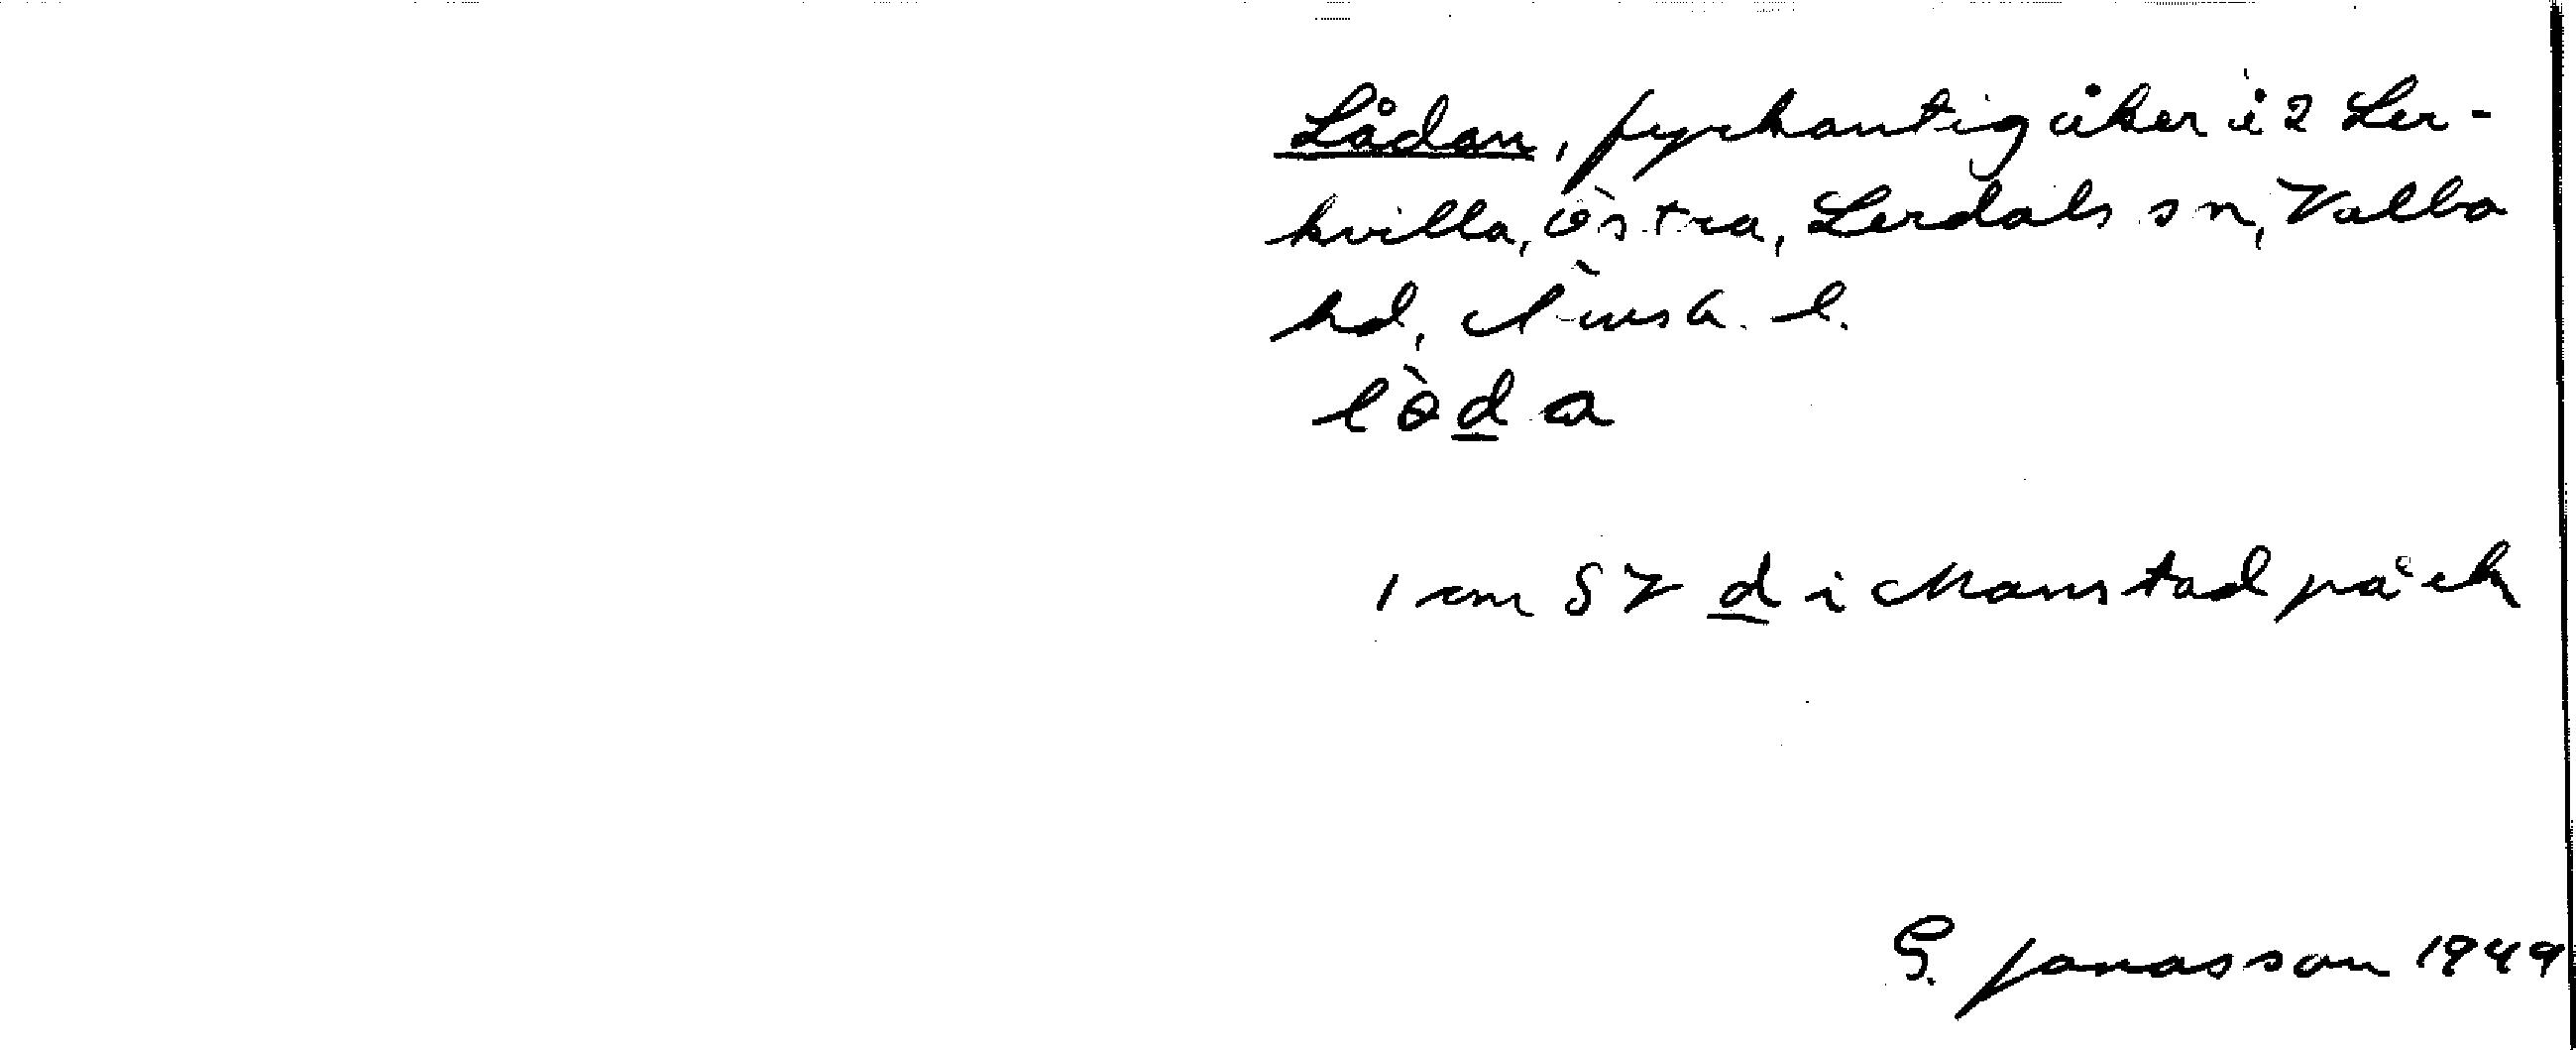 Lådan, fyrkantig åker i 2 Ler-
kvilla, östra, Lerdals sn, Valbo
hd, Älvsb. l.
lòda
1 cm SV d i Monstad på ek
G. Jonasson 1949